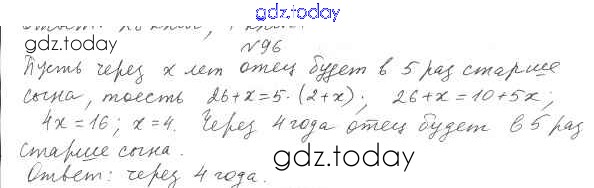 gdz.today
gdz.today
№96
Пусть через x лет отец будет в 5 раз старше
сына, то есть 26+x=5·(2+x); 26+x=10+5x;
4x=16; x=4. Через 4 года отец будет в 5 раз
старше сына.
gdz.today
Ответ: через 4 года.